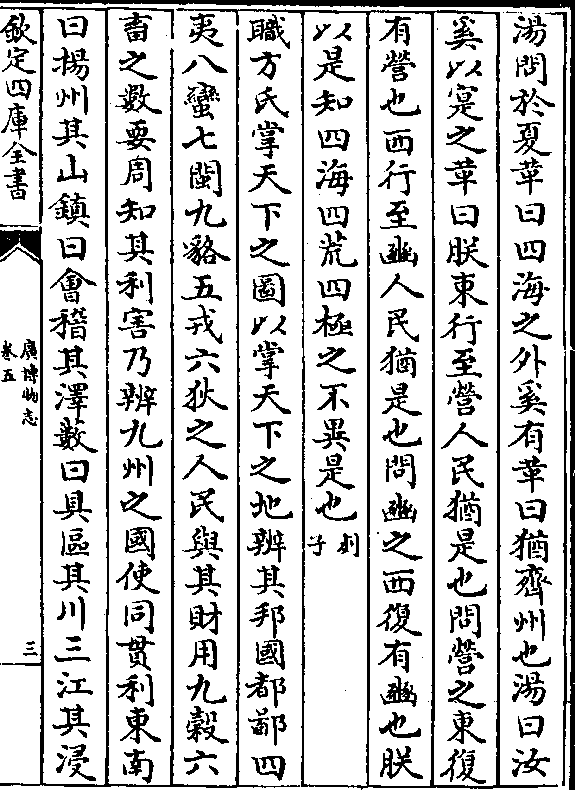 湯問於夏革曰四海之外奚有革曰猶齊州也湯曰汝
奚以寔之革曰朕東行至營人民猶是也問營之東復
有營也西行至豳人民猶是也問豳之西復有豳也朕
以是知四海四荒四極之不異是也列子
職方氏掌天下之圖以掌天下之地辨其邦國都鄙四
夷八蠻七閩九貉五戎六狄之人民與其財用九穀六
畜之數要周知其利害乃辨九州之國使同貫利東南
曰揚州其山鎮曰會稽其澤藪曰具區其川三江其浸
欽定四庫全書
廣博物志
卷五
三